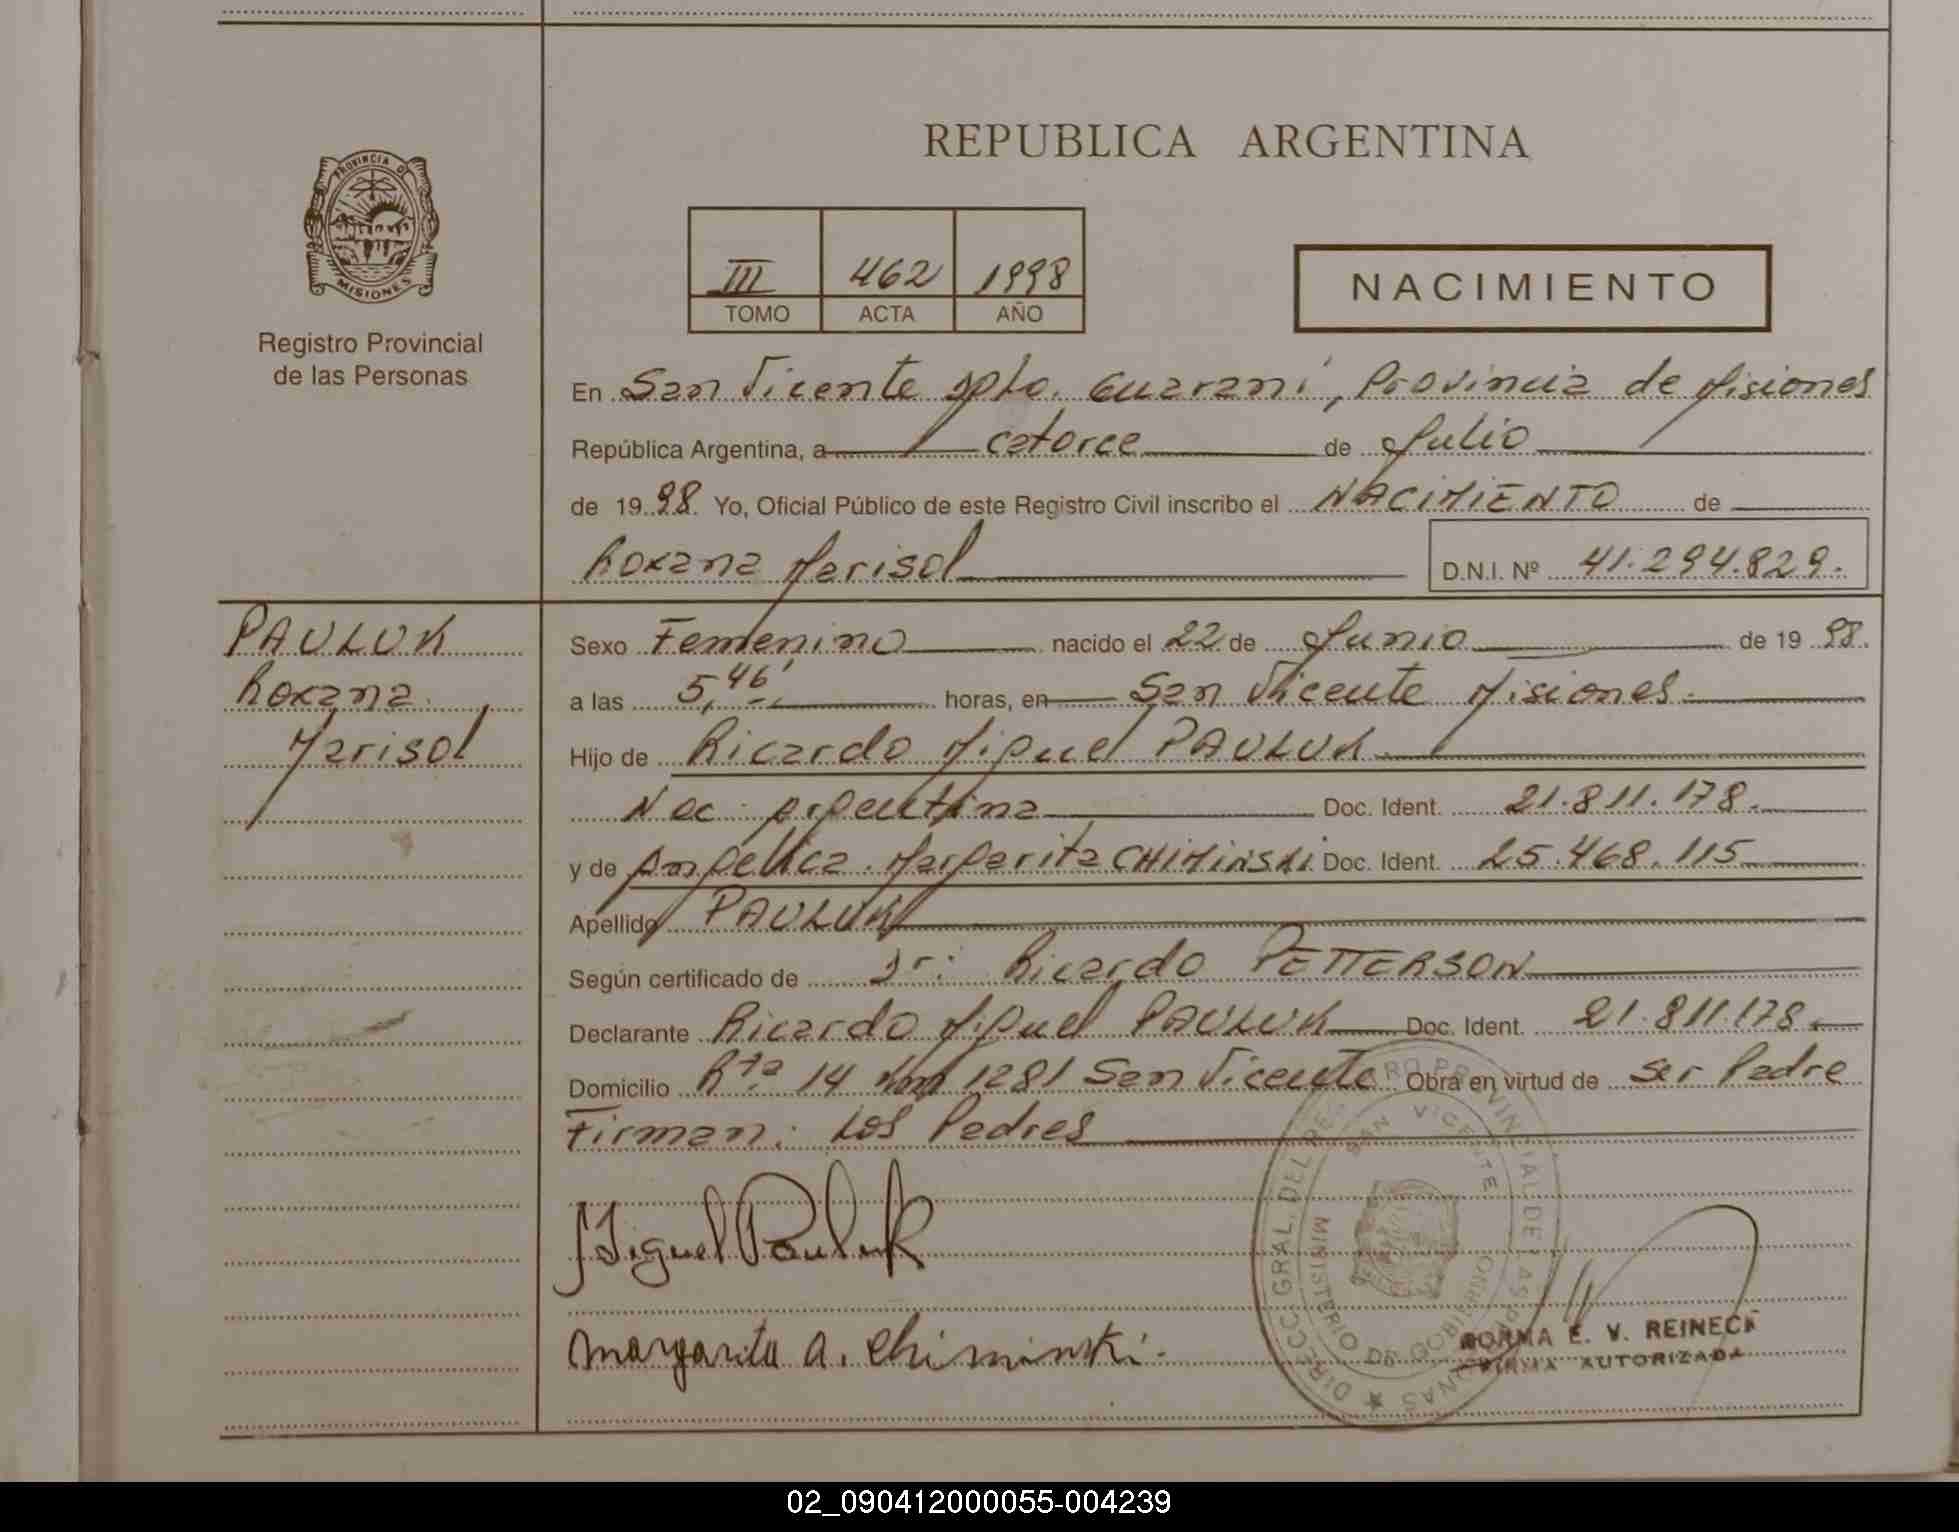 REPUBLICA ARGENTINA
PROVINCIA DE
MISIONES
Registro Provincial
de las Personas
III 462 1998
TOMO ACTA AÑO
NACIMIENTO
En San Vicente Dpto. Guaraní, Provincia de Misiones
República Argentina, a catorce de Julio
de 19 98 Yo, Oficial Público de este Registro Civil inscribo el NACIMIENTO de
Roxana Marisol D.N.I. Nº 41.294.829.
PAULUK
Roxana
Marisol
Sexo Femenino nacido el 22 de Junio de 19 98.
a las 5,46' horas, en San Vicente Misiones.
Hijo de Ricardo Miguel PAULUK
Nac. argentina Doc. Ident. 21.811.178.
y de Angelica Margarita CHIMINSKI Doc. Ident. 25.468.115
Apellido PAULUK
Según certificado de Dr: Ricardo PETTERSON
Declarante Ricardo Miguel PAULUK Doc. Ident. 21.811.178.
Domicilio Rta 14 Km 1281 San Vicente Obra en virtud de ser Padre
Firman: Los Padres
Miguel Pauluk
Margarita A. Chiminski.
DIRECC. GRAL. DEL REG PROVINCIAL DE LAS PERSONAS
SAN VICENTE
MINISTERIO DE GOBIERNO
NORMA E. V. REINECK
FIRMA AUTORIZADA
02_090412000055-004239